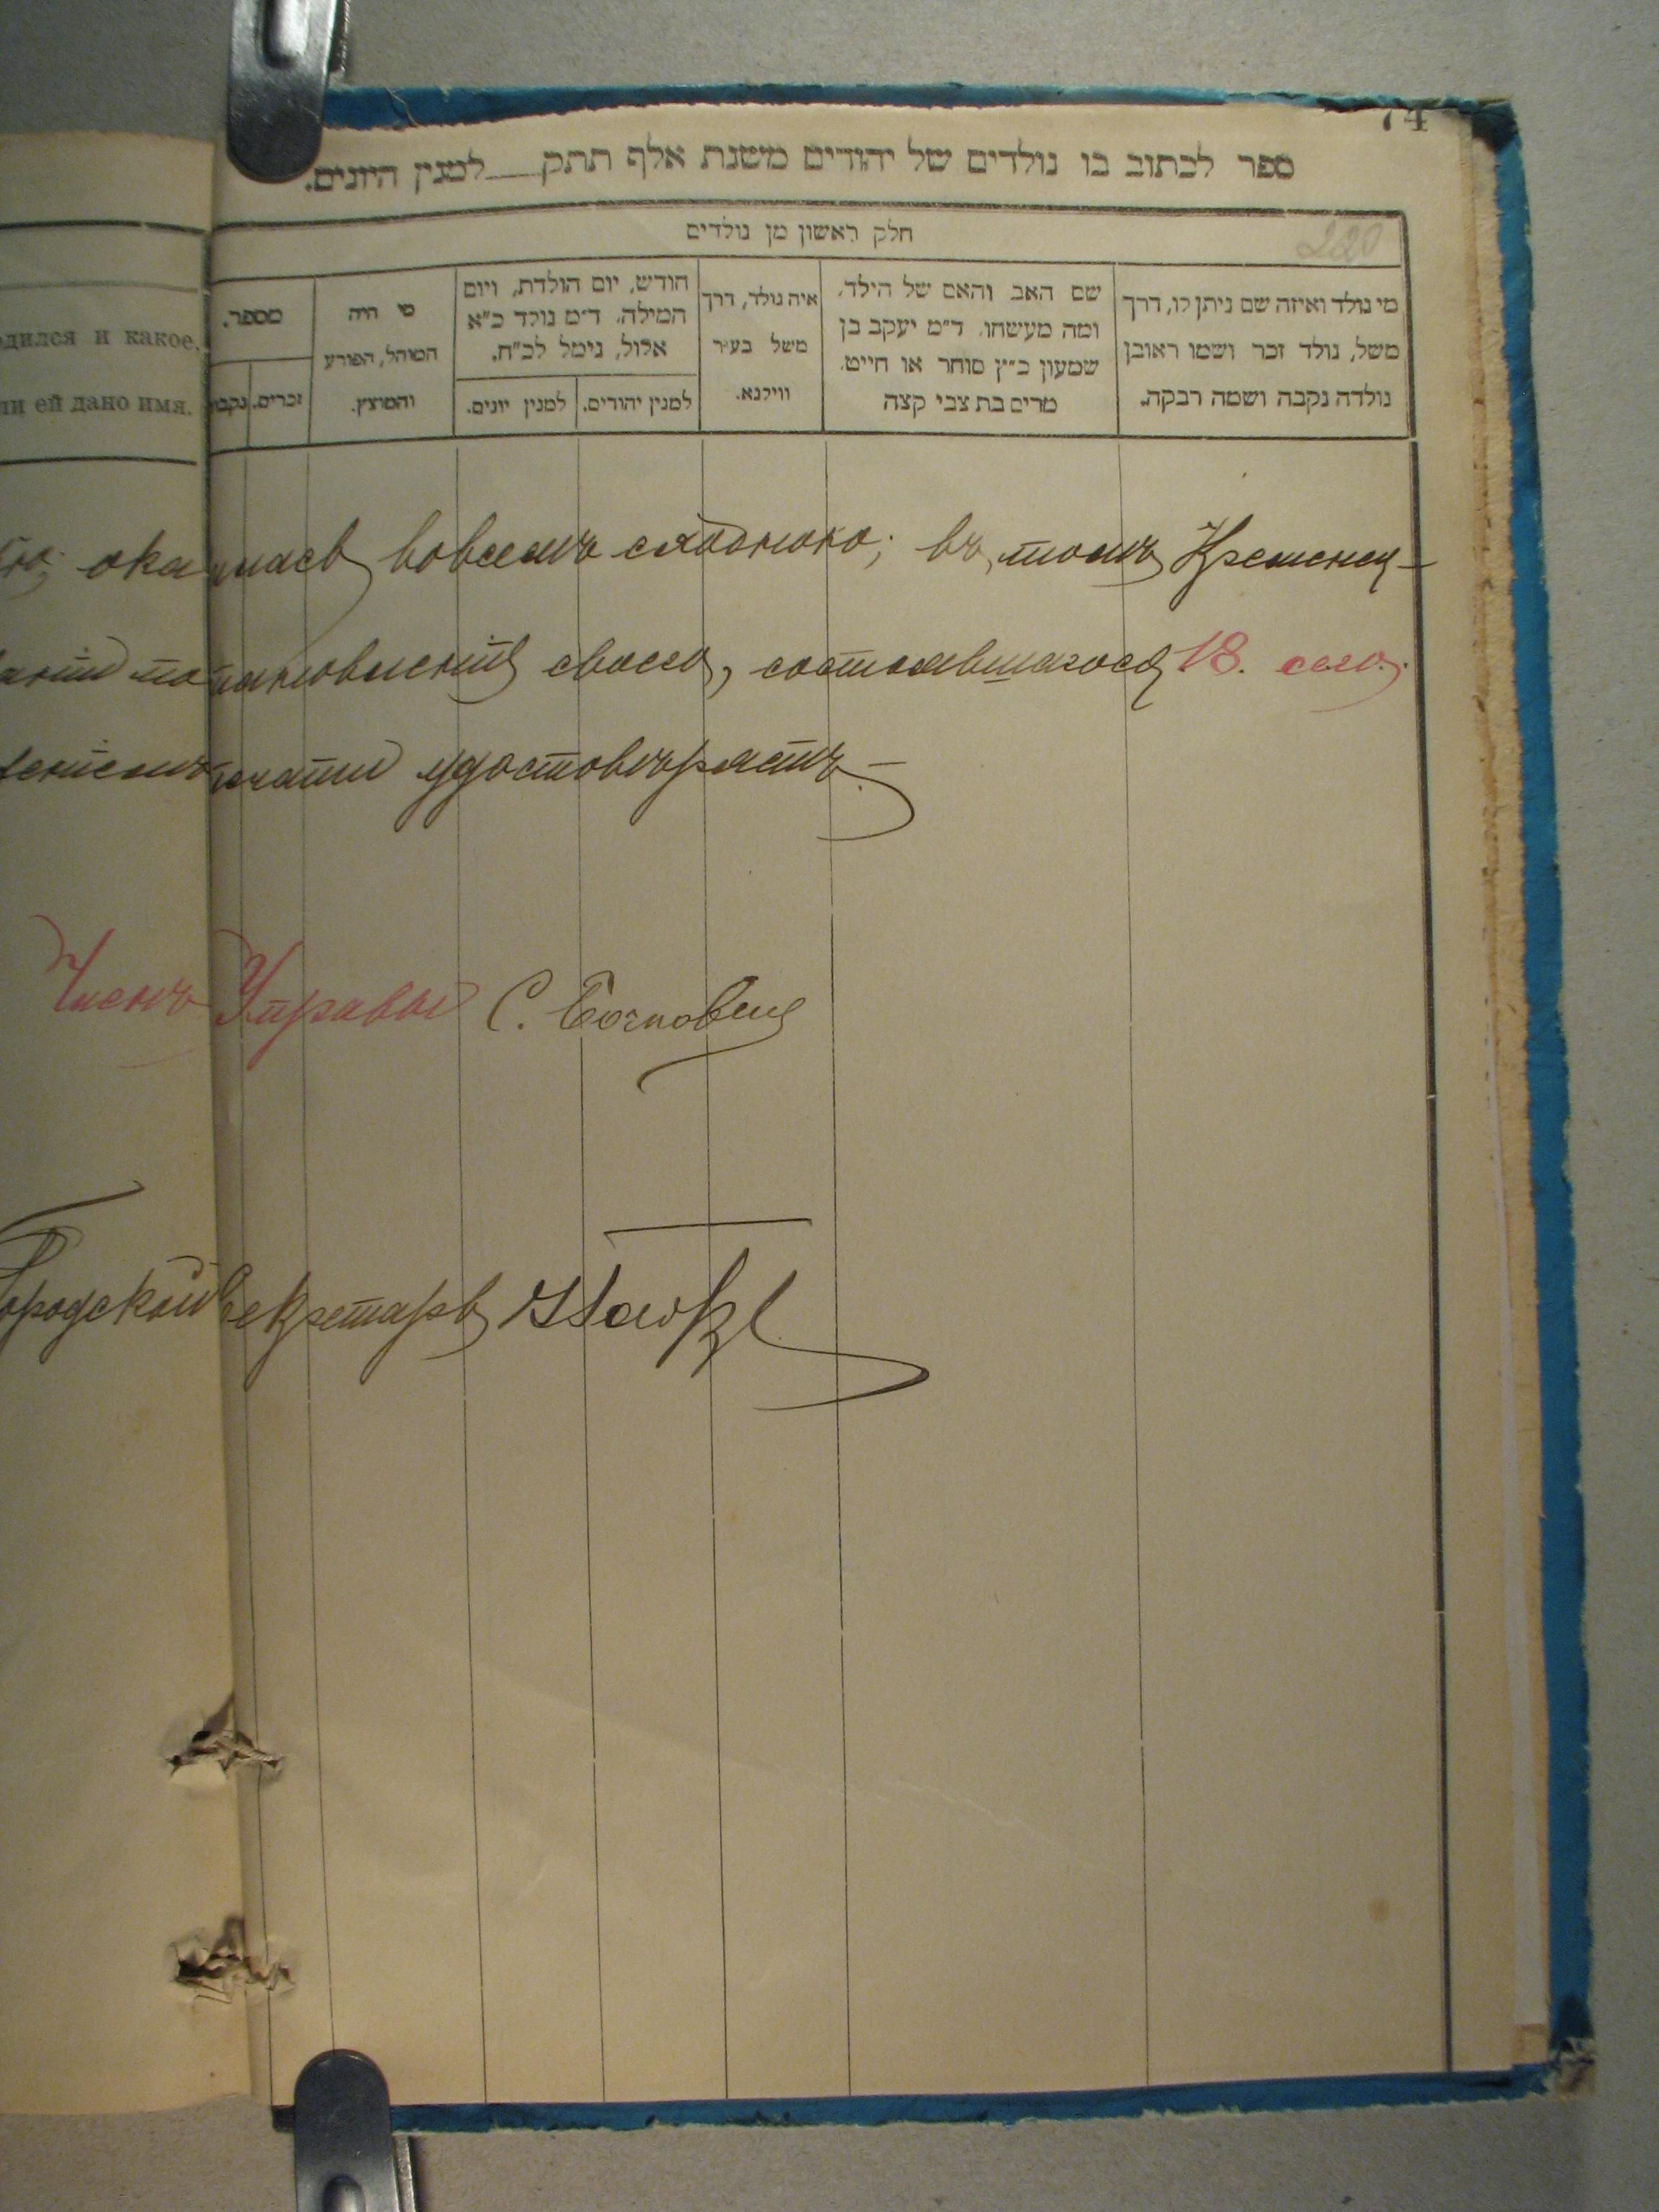 74
ספר לכתוב בו נולדים של יהודים משנת אלף תתק___למנין היונים.
חלק ראשון מן נולדים
220
מי נולד ואיזה שם ניתן לו, דרך
משל, נולד זכר ושמו ראובן
נולדה נקבה ושמה רבקה.
שם האב והאם של הילד,
ומה מעשהו. ד״מ יעקב בן
שמעון כ״ץ סוחר או חייט.
מרים בת צבי קצה
איה נולד, דרך
משל בעיר
ווילנא.
חודש, יום הולדת, ויום
המילה. ד״מ נולד כ״א
אלול, נימל לכ״ח.
למנין יהודים.
למנין יונים.
מי היה
המוהל, הפורע
והמוצץ.
מספר.
זכרים.
נקבו
одился и какое,
ли ей дано имя.
вовсемъ сходною; въ томъ Кременец-
своего, состоявшагося 18. сего
удостовѣряетъ
Членъ Управы С.
Городской Секретарь